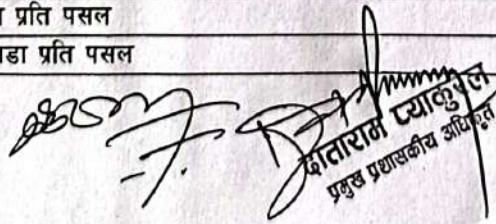 प्रति पसल
डा प्रति पसल
दाताराम प्याकुरेल
प्रमुख प्रशासकीय अधिकृत